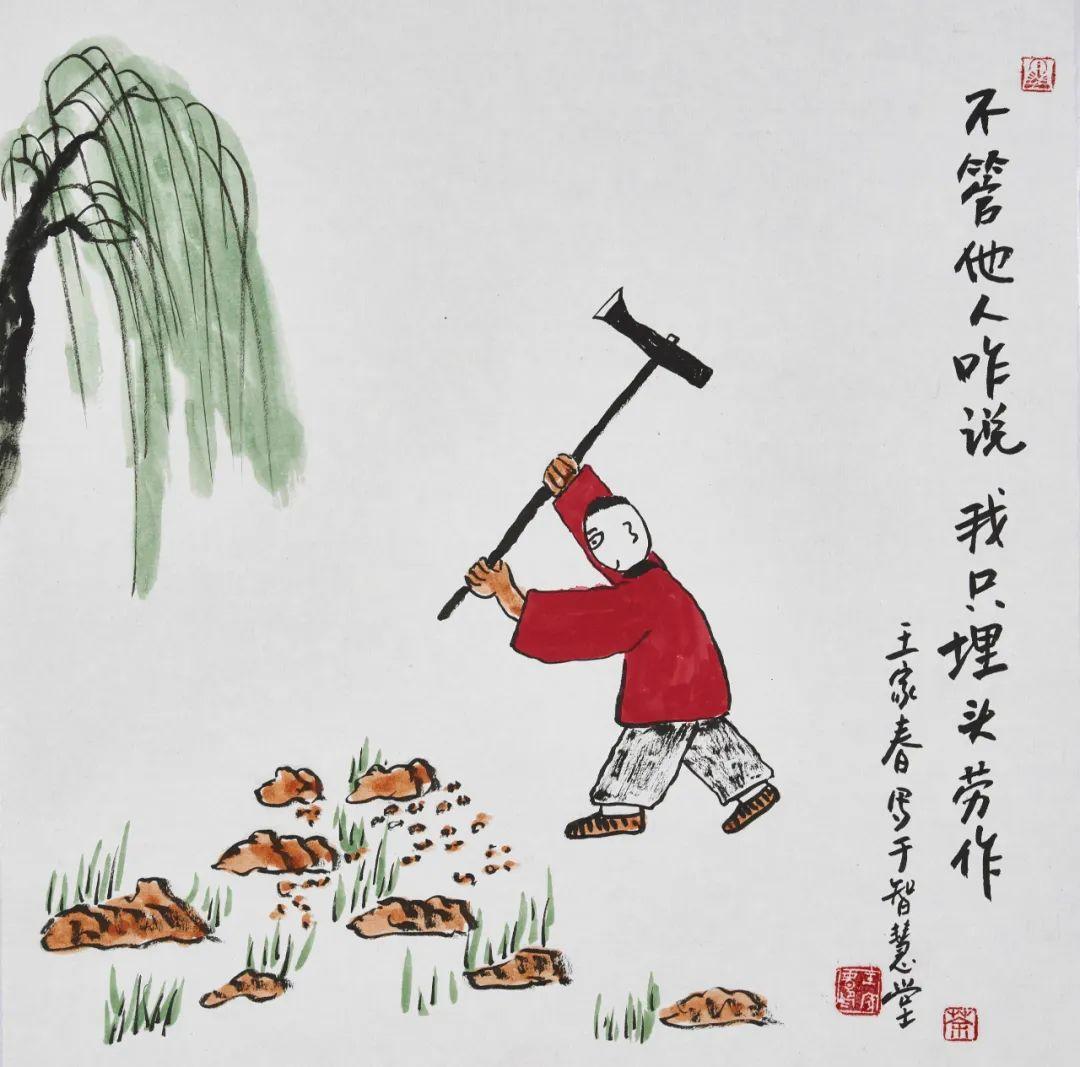 不管他人咋说 我只埋头劳作
王家春写于智慧堂
茶